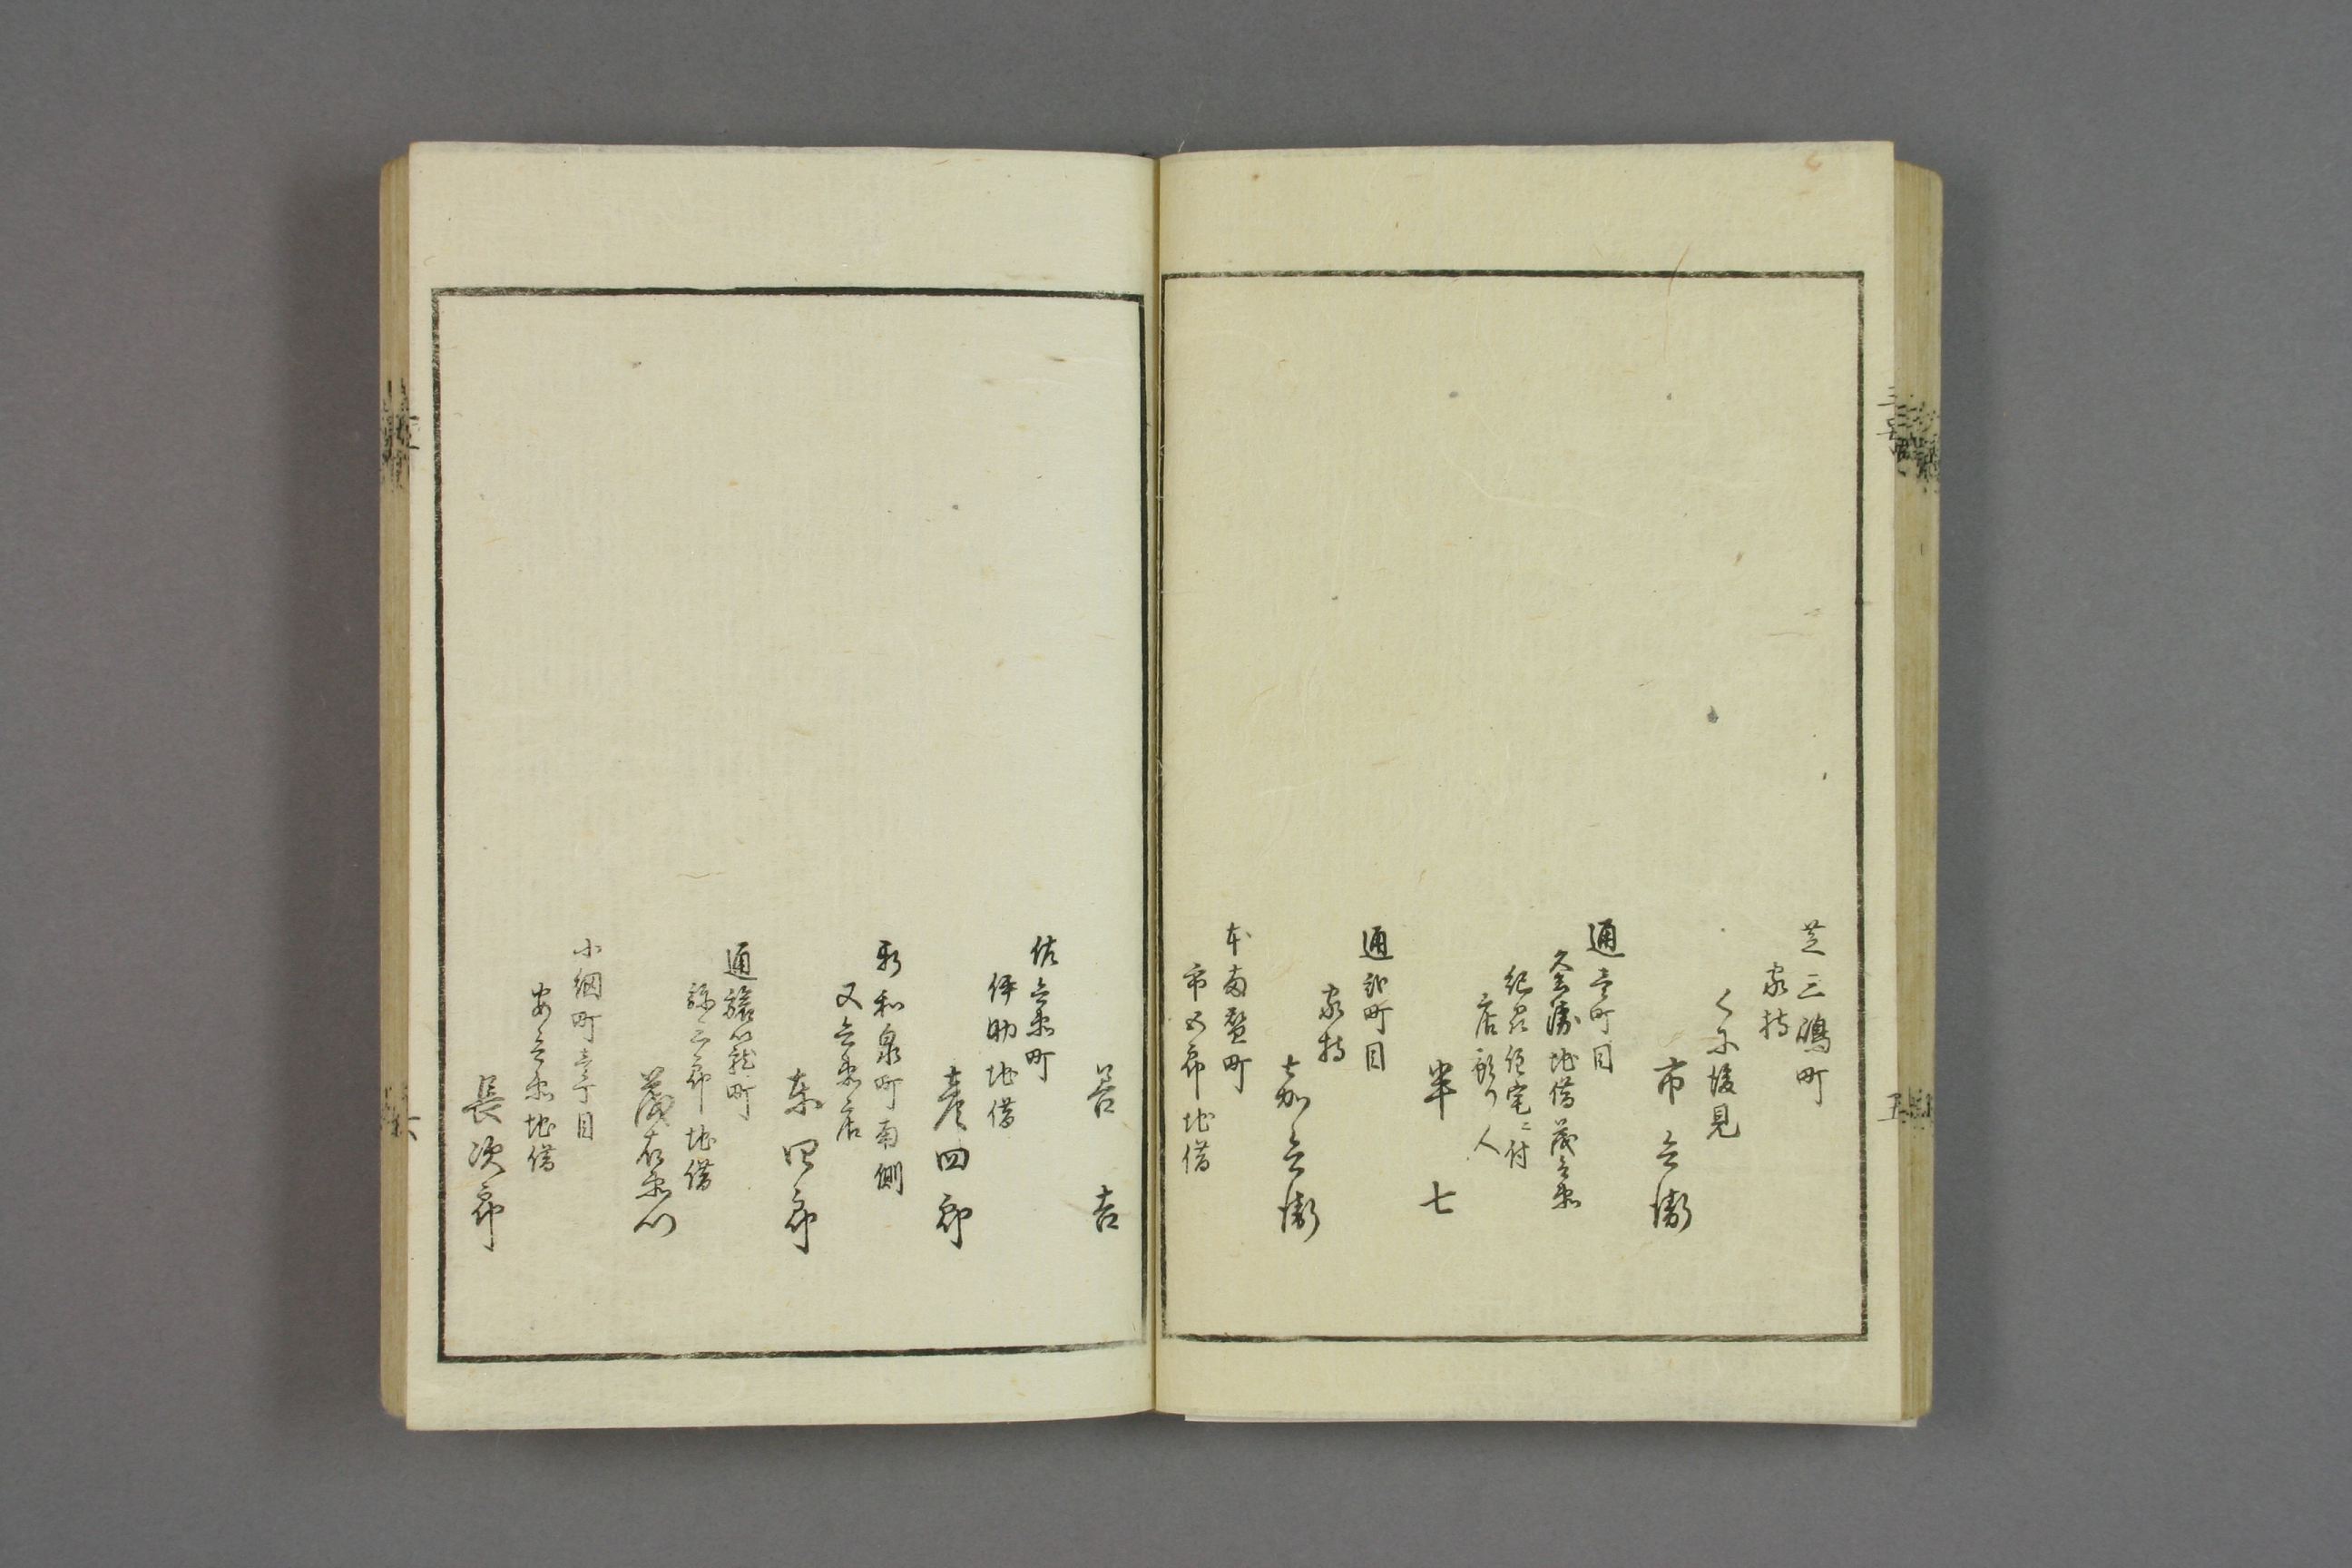 芝三嶋町
家持
後見
市兵衛
通壱町目
地借茂兵衛
紀州住宅ニ付
店預り人
半七
通弐町目
家持
嘉兵衛
本両替町
市五郎地借
善吉
佐兵衛町
伊助地借
彦四郎
新和泉町南側
又兵衛店
東四郎
通旅籠町
孫三郎地借
茂右衛門
小網町壱丁目
安兵衛地借
長次郎